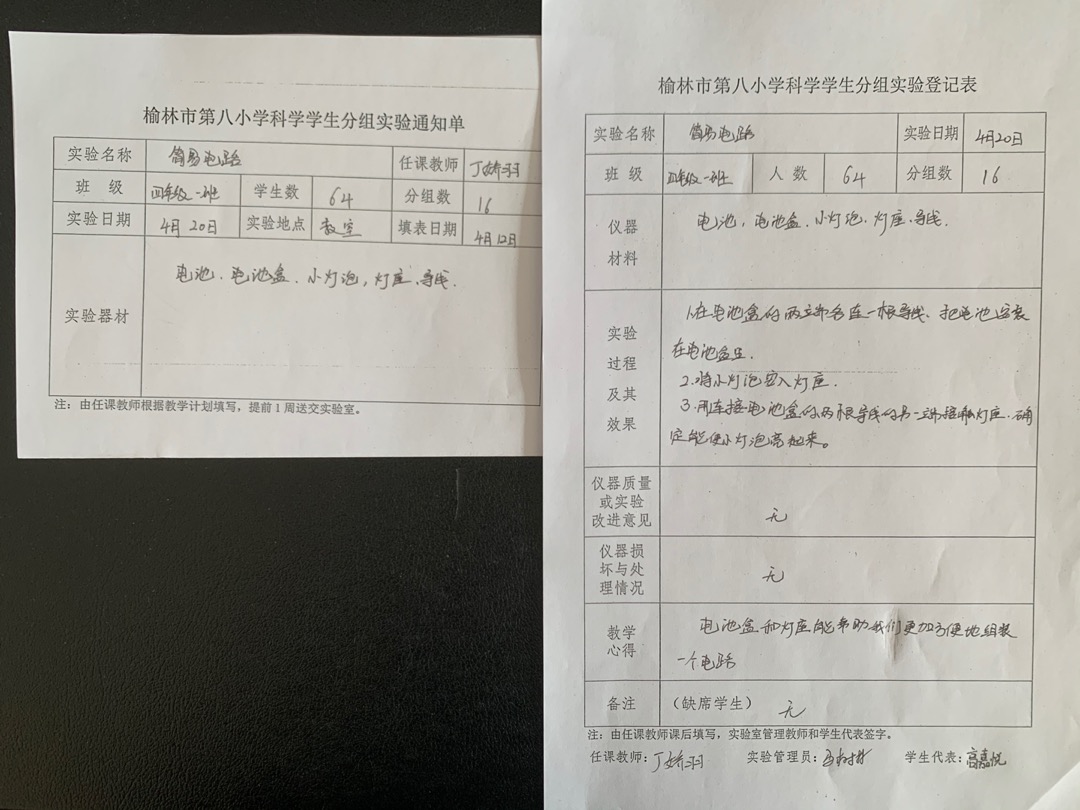 榆林市第八小学科学学生分组实验通知单
实验名称 简易电路 任课教师 丁娇羽
班 级 四年级一班 学生数 64 分组数 16
实验日期 4月20日 实验地点 教室 填表日期 4月12日
实验器材 电池、电池盒、小灯泡,灯座、导线.
注:由任课教师根据教学计划填写,提前1周送交实验室。
榆林市第八小学科学学生分组实验登记表
实验名称 简易电路 实验日期 4月20日
班 级 四年级一班 人 数 64 分组数 16
仪器
材料
电池,电池盒、小灯泡、灯座、导线.
实验
过程
及其
效果
1.在电池盒的两端各连一根导线、把电池安装
在电池盒里.
2.将小灯泡安入灯座.
3.用连接电池盒的两根导线的另一端接触灯座.确
定能使小灯泡亮起来。
仪器质量
或实验
改进意见
无
仪器损
坏与处
理情况
无
教学
心得
电池盒和灯座能帮助我们更加方便地组装
一个电路
备注 (缺席学生) 无
注:由任课教师课后填写,实验室管理教师和学生代表签字。
任课教师:丁娇羽 实验管理员: 学生代表:高嘉悦